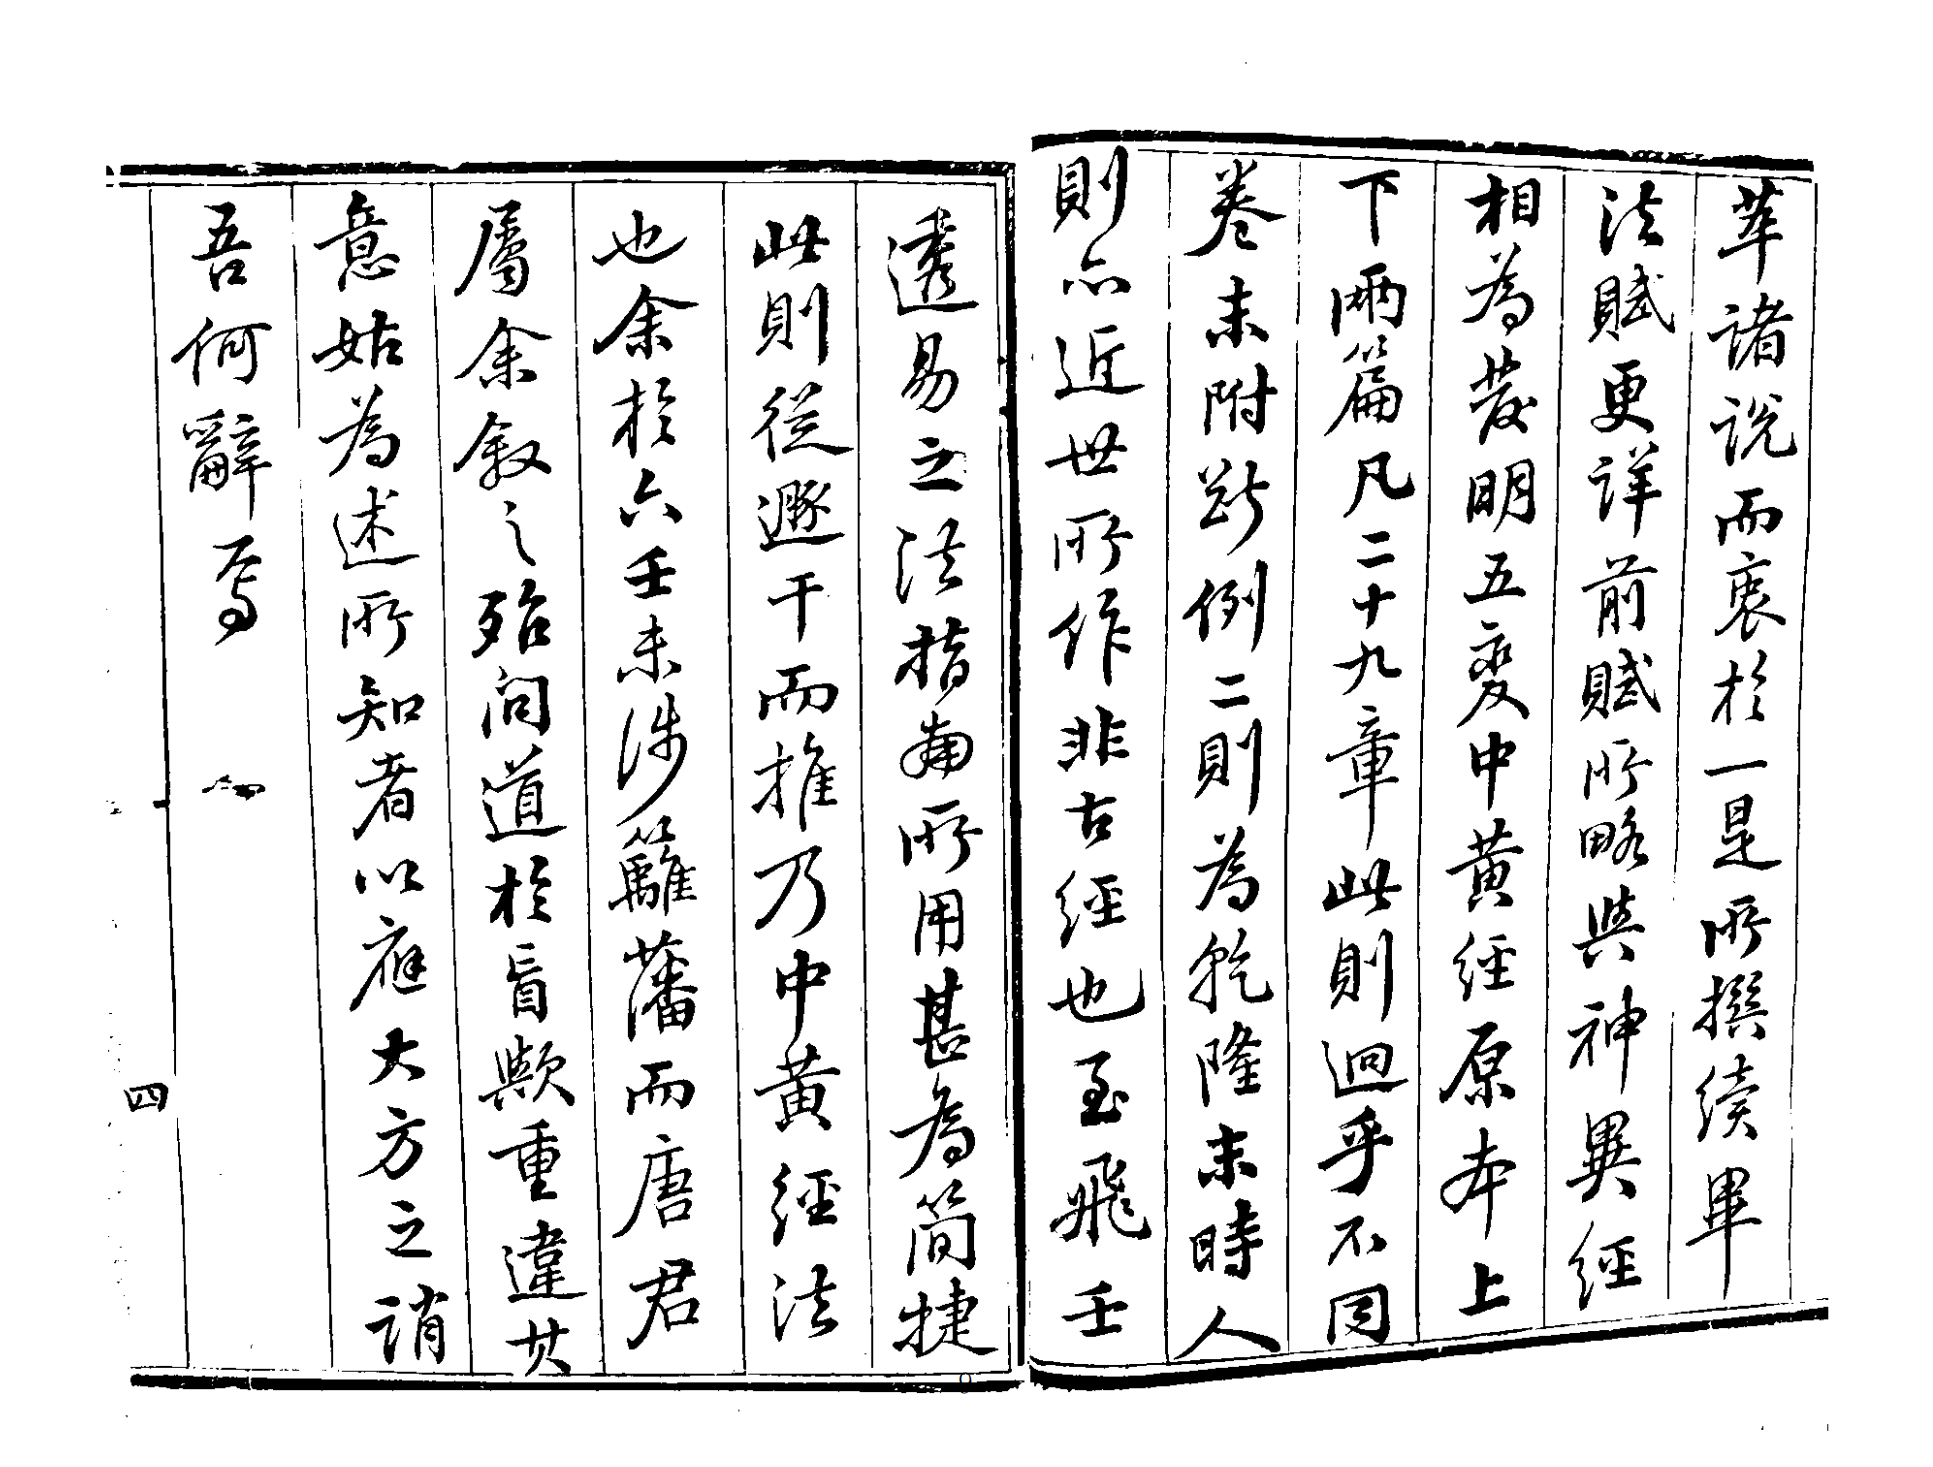 萃諸說而衷於一是所撰續畢
法賦更詳前賦所略與神異經
相為發明五變中黃經原本上
下兩篇凡二十九章此則迥乎不同
卷末附斷例二則為乾隆末時人
則亦近世所作非古經也至飛壬
透易之法指南所用甚為簡捷
此則從遯干而推乃中黃經法
也余於六壬未涉籬藩而唐君
屬余敘之殆問道於盲歟重違其
意姑為述所知者以應大方之誚
吾何辭焉
四